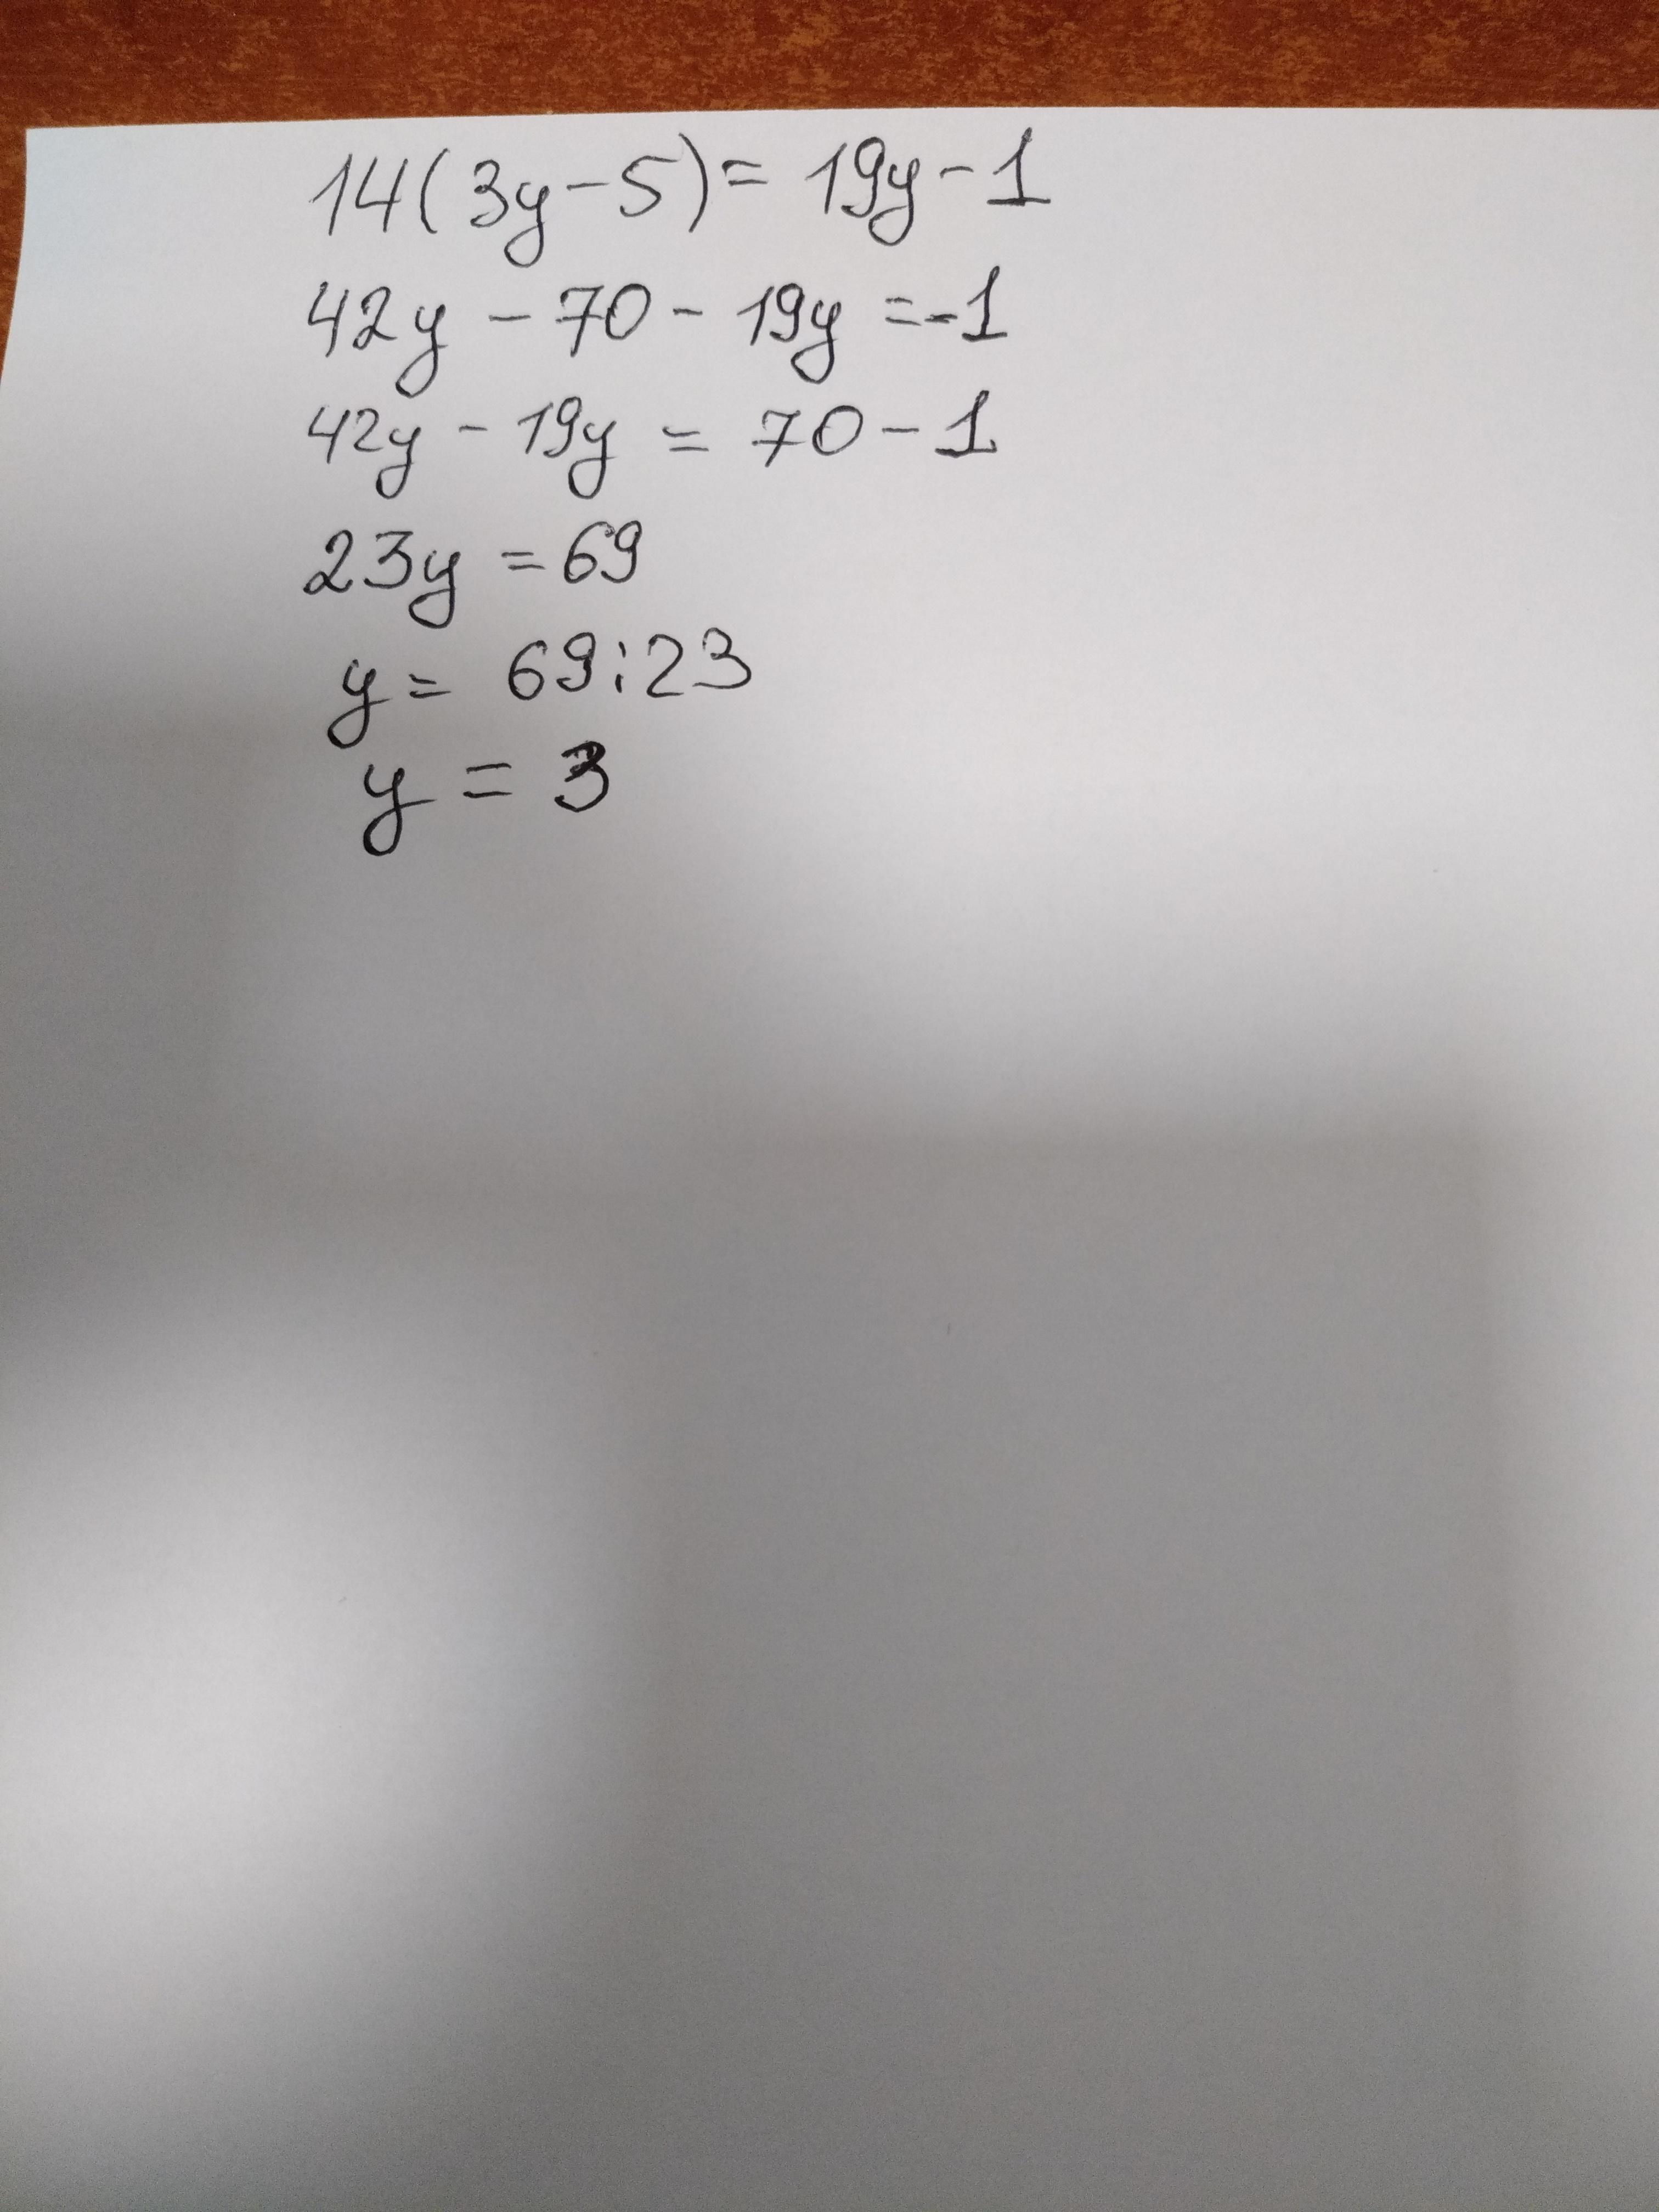 14(3y-5)= 19y-1
42y - 70 - 19y =-1
42y - 19y = 70-1
23y = 69
y= 69:23
y = 3